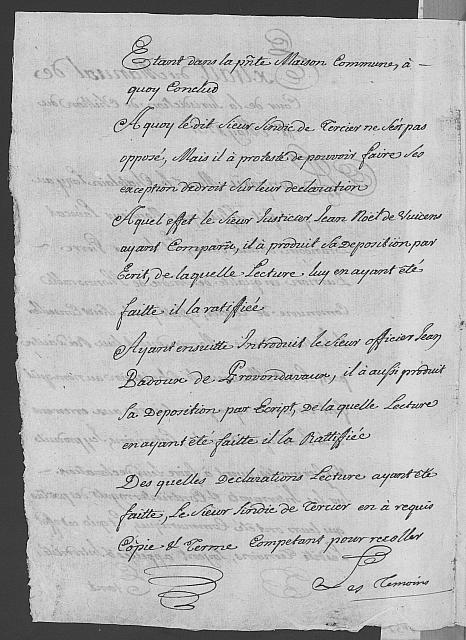 Etant dans la pñte Maison Commune, à —
quoy Conclud
A quoy le dit Sieur Sindic de Tercier ne s'est pas
opposé, Mais il à protesté de pouvoir faire ses
exception de droit Sur leur declaration
A quel effet le Sieur Justicier Jean Noël de Vuicens
ayant Comparû, il à produit Sa Deposition par
Ecrit, de laquelle Lecture luy en ayant été
faitte il la ratiffiée
Ayant ensuitte Introduit le Sieur officier Jean
Badoux de Provondavaux, il à aussi produit
Sa Deposition par Ecript, de la quelle Lecture
en ayant été faitte il la Rattiffiée
Des quelles Declarations Lecture ayant été
faitte, Le Sieur Sindic de Tercier en à requis
Còpie & Terme Competant pour recoller
Les Temoins